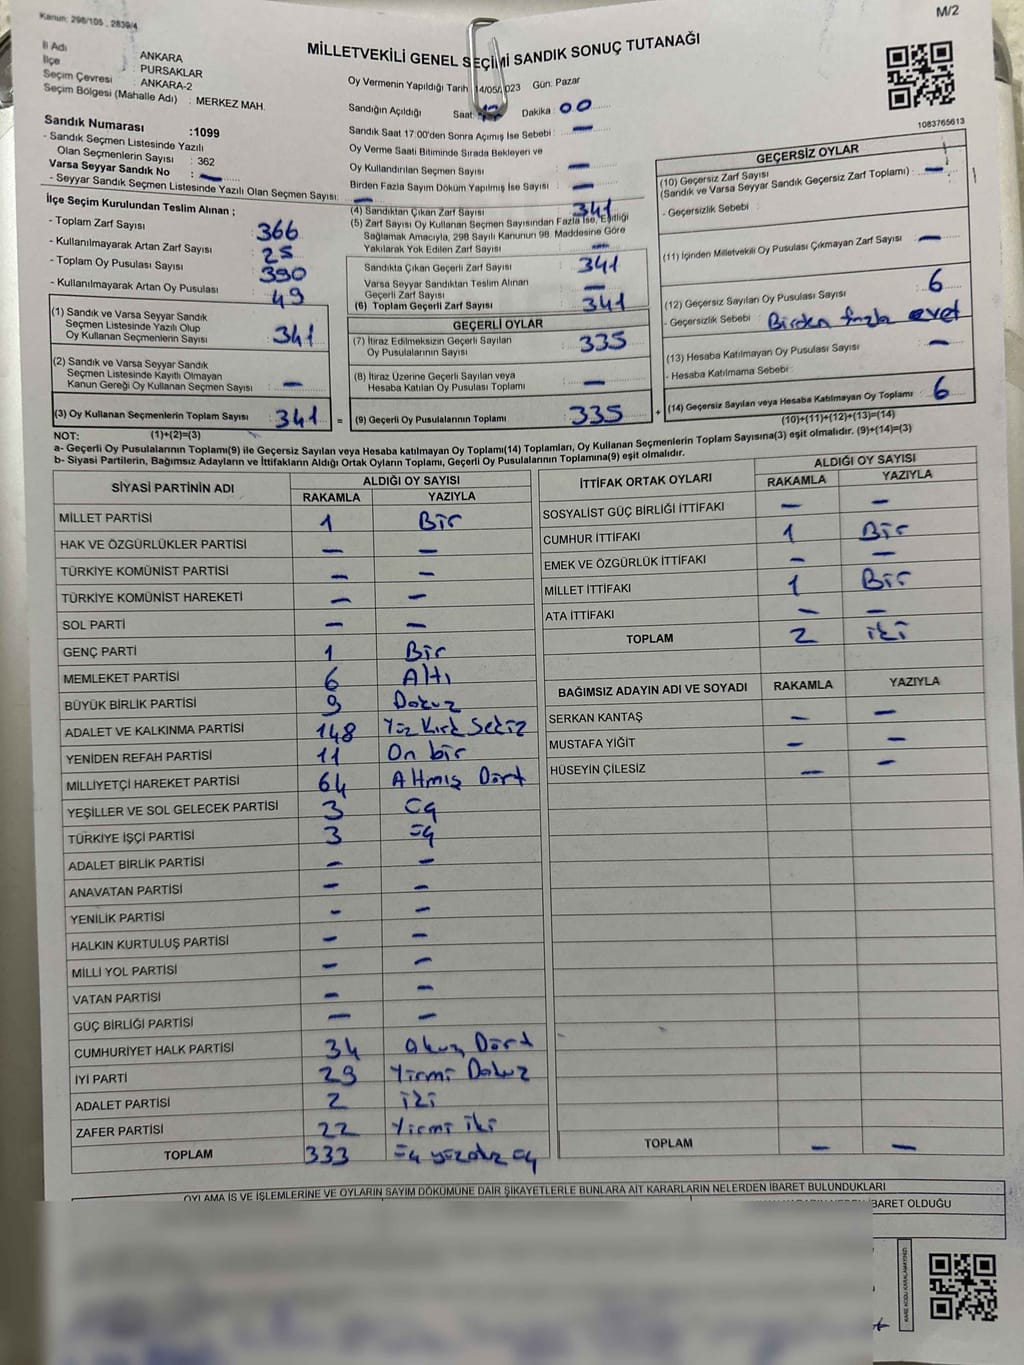 Kanun: 298/105 , 2839/4
M/2
MİLLETVEKİLİ GENEL SEÇİMİ SANDIK SONUÇ TUTANAĞI
İl Adı : ANKARA
İlçe : PURSAKLAR
Seçim Çevresi : ANKARA-2
Seçim Bölgesi (Mahalle Adı) : MERKEZ MAH.
Sandık Numarası :1099
- Sandık Seçmen Listesinde Yazılı
Olan Seçmenlerin Sayısı : 362
Varsa Seyyar Sandık No : —
- Seyyar Sandık Seçmen Listesinde Yazılı Olan Seçmen Sayısı: —
İlçe Seçim Kurulundan Teslim Alınan ;
- Toplam Zarf Sayısı : 366
- Kullanılmayarak Artan Zarf Sayısı : 25
- Toplam Oy Pusulası Sayısı : 390
- Kullanılmayarak Artan Oy Pusulası : 49
(1) Sandık ve Varsa Seyyar Sandık
Seçmen Listesinde Yazılı Olup
Oy Kullanan Seçmenlerin Sayısı : 341
(2) Sandık ve Varsa Seyyar Sandık
Seçmen Listesinde Kayıtlı Olmayan
Kanun Gereği Oy Kullanan Seçmen Sayısı : —
(3) Oy Kullanan Seçmenlerin Toplam Sayısı : 341 =
(1)+(2)=(3)
Oy Vermenin Yapıldığı Tarih 14/05/ 023 Gün. Pazar
Sandığın Açıldığı Saat : 17 Dakika : 00
Sandık Saat 17:00'den Sonra Açımış İse Sebebi : —
Oy Verme Saati Bitiminde Sırada Bekleyen ve
Oy Kullandırılan Seçmen Sayısı : —
Birden Fazla Sayım Döküm Yapılmış İse Sayısı : —
(4) Sandıktan Çıkan Zarf Sayısı : 341
(5) Zarf Sayısı Oy Kullanan Seçmen Sayısından Fazla İse, Eşitliği
Sağlamak Amacıyla, 298 Sayılı Kanunun 98. Maddesine Göre
Yakılarak Yok Edilen Zarf Sayısı : —
Sandıkta Çıkan Geçerli Zarf Sayısı : 341
Varsa Seyyar Sandıktan Teslim Alınan
Geçerli Zarf Sayısı : —
(6) Toplam Geçerli Zarf Sayısı : 341
GEÇERLİ OYLAR
(7) İtiraz Edilmeksizin Geçerli Sayılan
Oy Pusulalarının Sayısı : 335
(8) İtiraz Üzerine Geçerli Sayılan veya
Hesaba Katılan Oy Pusulası Toplamı : —
(9) Geçerli Oy Pusulalarının Toplamı : 335 +
1083765613
GEÇERSİZ OYLAR
(10) Geçersiz Zarf Sayısı
(Sandık ve Varsa Seyyar Sandık Geçersiz Zarf Toplamı) : —
- Geçersizlik Sebebi :
(11) İçinden Milletvekili Oy Pusulası Çıkmayan Zarf Sayısı : —
(12) Geçersiz Sayılan Oy Pusulası Sayısı : 6
- Geçersizlik Sebebi : Birden fazla evet
(13) Hesaba Katılmayan Oy Pusulası Sayısı : —
- Hesaba Katılmama Sebebi :
(14) Geçersiz Sayılan veya Hesaba Katılmayan Oy Toplamı : 6
(10)+(11)+(12)+(13)=(14)
NOT:
a- Geçerli Oy Pusulalarının Toplamı(9) ile Geçersiz Sayılan veya Hesaba katılmayan Oy Toplamı(14) Toplamları, Oy Kullanan Seçmenlerin Toplam Sayısına(3) eşit olmalıdır. (9)+(14)=(3)
b- Siyasi Partilerin, Bağımsız Adayların ve İttifakların Aldığı Ortak Oyların Toplamı, Geçerli Oy Pusulalarının Toplamına(9) eşit olmalıdır.
SİYASİ PARTİNİN ADI ALDIĞI OY SAYISI
RAKAMLA YAZIYLA
MİLLET PARTİSİ 1 Bir
HAK VE ÖZGÜRLÜKLER PARTİSİ — —
TÜRKİYE KOMÜNİST PARTİSİ — —
TÜRKİYE KOMÜNİST HAREKETİ — —
SOL PARTİ — —
GENÇ PARTİ 1 Bir
MEMLEKET PARTİSİ 6 Altı
BÜYÜK BİRLİK PARTİSİ 9 Dokuz
ADALET VE KALKINMA PARTİSİ 148 Yüz Kırk Sekiz
YENİDEN REFAH PARTİSİ 11 On bir
MİLLİYETÇİ HAREKET PARTİSİ 64 Altmış Dört
YEŞİLLER VE SOL GELECEK PARTİSİ 3 Üç
TÜRKİYE İŞÇİ PARTİSİ 3 Üç
ADALET BİRLİK PARTİSİ — —
ANAVATAN PARTİSİ — —
YENİLİK PARTİSİ — —
HALKIN KURTULUŞ PARTİSİ — —
MİLLİ YOL PARTİSİ — —
VATAN PARTİSİ — —
GÜÇ BİRLİĞİ PARTİSİ — —
CUMHURİYET HALK PARTİSİ 34 Dört
İYİ PARTİ 29 Yirmi Dokuz
ADALET PARTİSİ 2 İki
ZAFER PARTİSİ 22 Yirmi iki
TOPLAM 333
İTTİFAK ORTAK OYLARI ALDIĞI OY SAYISI
RAKAMLA YAZIYLA
SOSYALİST GÜÇ BİRLİĞİ İTTİFAKI — —
CUMHUR İTTİFAKI 1 Bir
EMEK VE ÖZGÜRLÜK İTTİFAKI — —
MİLLET İTTİFAKI 1 Bir
ATA İTTİFAKI — —
TOPLAM 2 iki
BAĞIMSIZ ADAYIN ADI VE SOYADI RAKAMLA YAZIYLA
SERKAN KANTAŞ — —
MUSTAFA YİĞİT — —
HÜSEYİN ÇİLESİZ — —
TOPLAM — —
OYLAMA İŞ VE İŞLEMLERİNE VE OYLARIN SAYIM DÖKÜMÜNE DAİR ŞİKAYETLERLE BUNLARA AİT KARARLARIN NELERDEN İBARET BULUNDUKLARI
İBARET OLDUĞU
KARE KODU KARALAMAYINIZ!